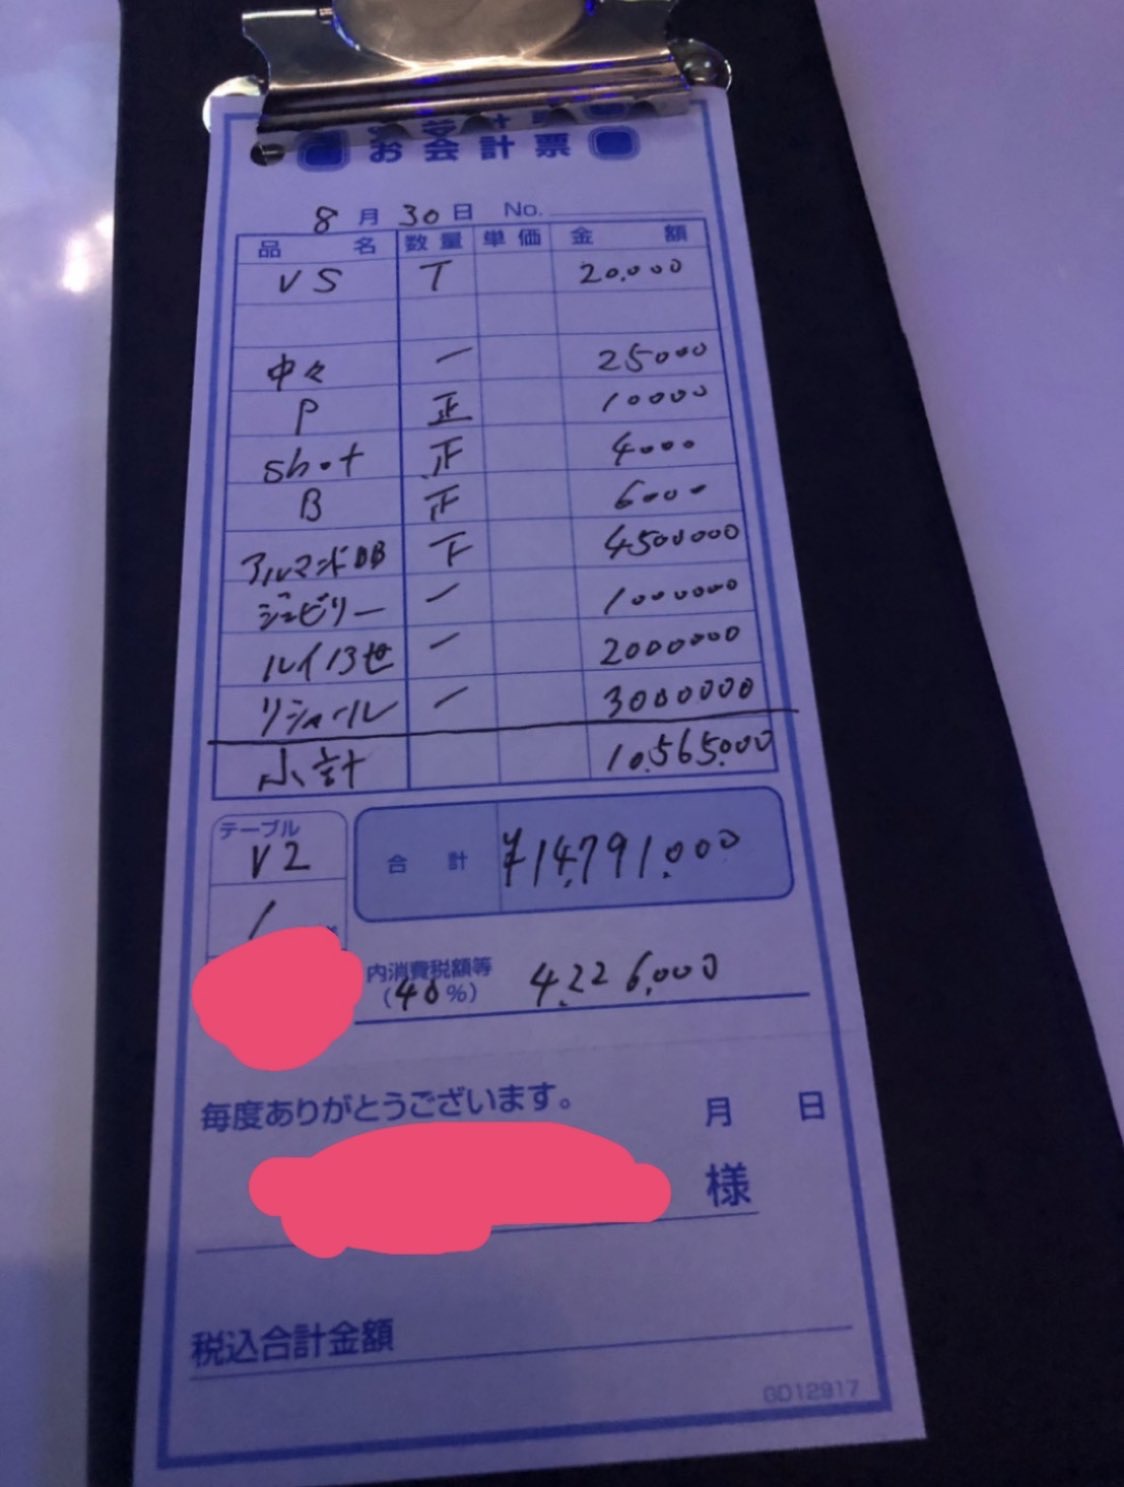 お会計票
8月30日 No.
品名 数量 単価 金額
VS T 20,000
中々 一 25000
P 正 10000
shot 正 4000
B 正 6000
アルマンドBB 下 4500000
ジュビリー 一 1000000
ルイ13世 一 2000000
リシャール 一 3000000
小計 10,565,000
テーブル
V2
合計 ¥14,791,000
内消費税額等
(40%) 4,226,000
毎度ありがとうございます。
月 日
様
税込合計金額
GD12917